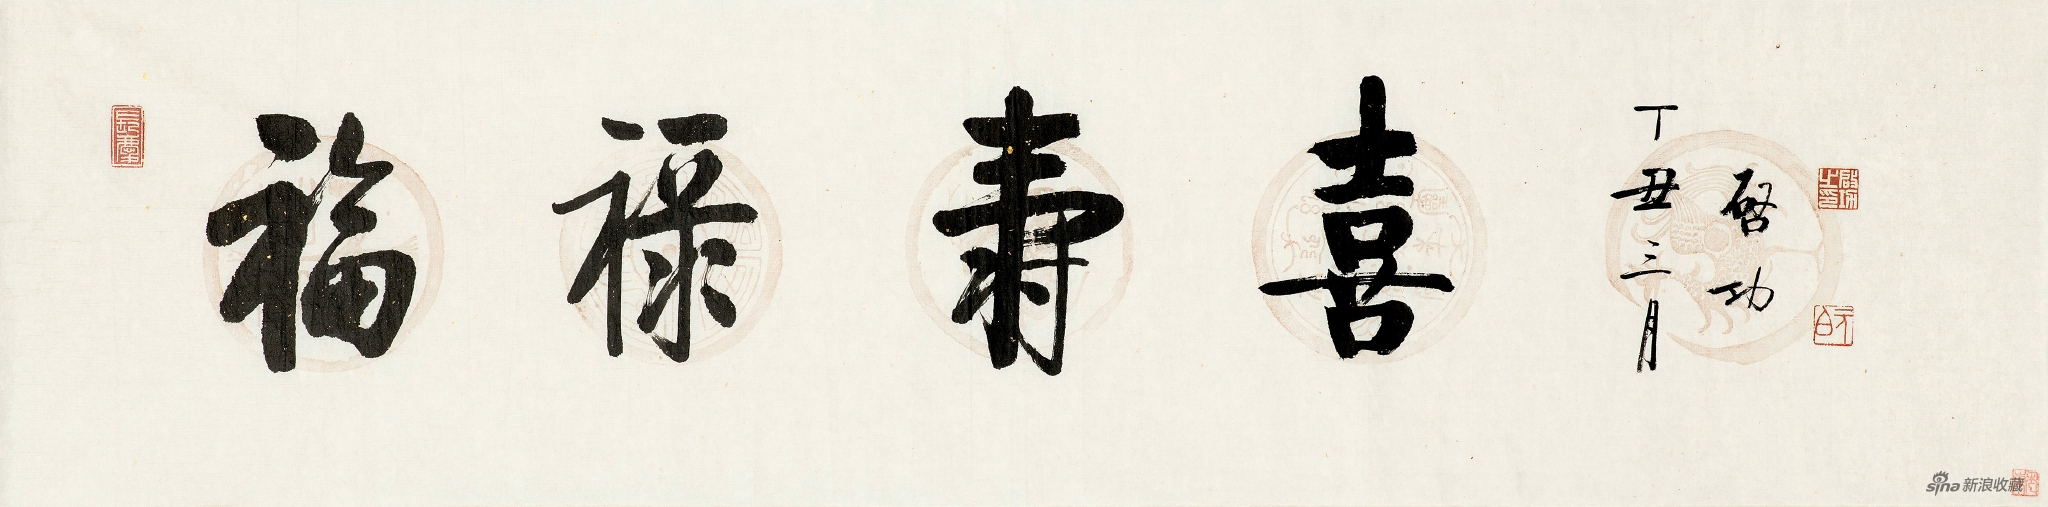 福禄寿喜
丁丑三月
启功
sina 新浪收藏